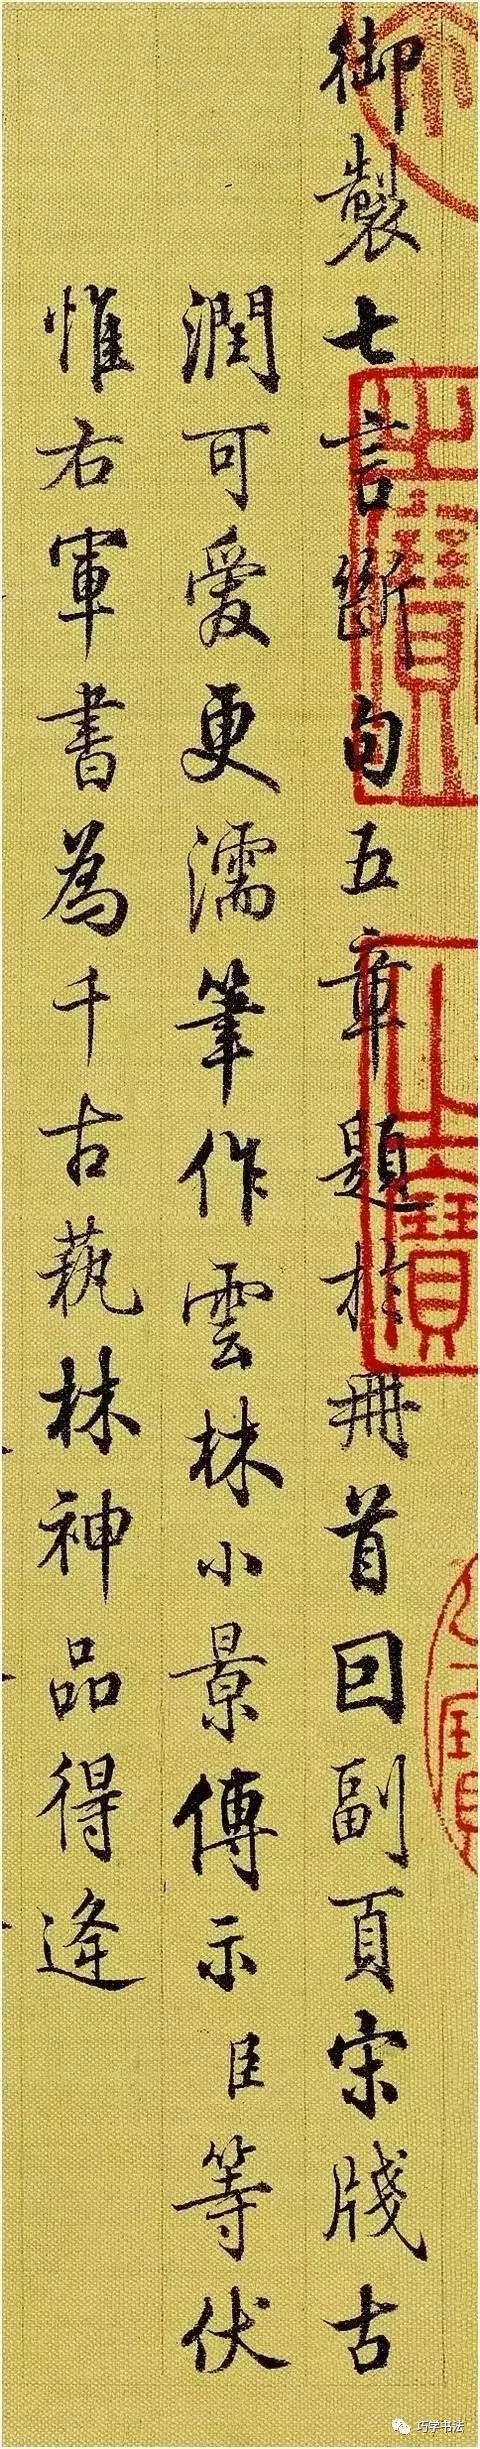 御製七言斷句五章題於冊首回副頁宋牋古
潤可愛更濡筆作雲林小景傳示臣等伏
惟右軍書為千古蓺林神品得逢
之寶
巧学书法